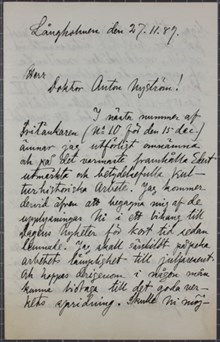 Långholmen den 27.11.89.
Herr
Doktor Anton Nyström!
I nästa nummer af
Fritänkaren (No 10 för den 15 dec.)
ämnar jag utförligt omnämna
och på det varmaste framhålla Edert
utmärkta och betydelsefulla kul-
turhistoriska arbete. Jag kommer
dervid äfven att begagna mig af de
upplysningar Ni i ett bihang till
Dagens Nyheter för kort tid sedan
lemnat. Jag skall särskildt påpeka
arbetets lämplighet till julpresent
och hoppas derigenom i någon mån
kunna bidraga till det goda ver-
kets spridning. Skulle Ni möj-